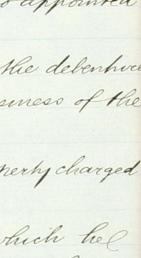 appointed
the debenture
siness of the
perty charged
which he